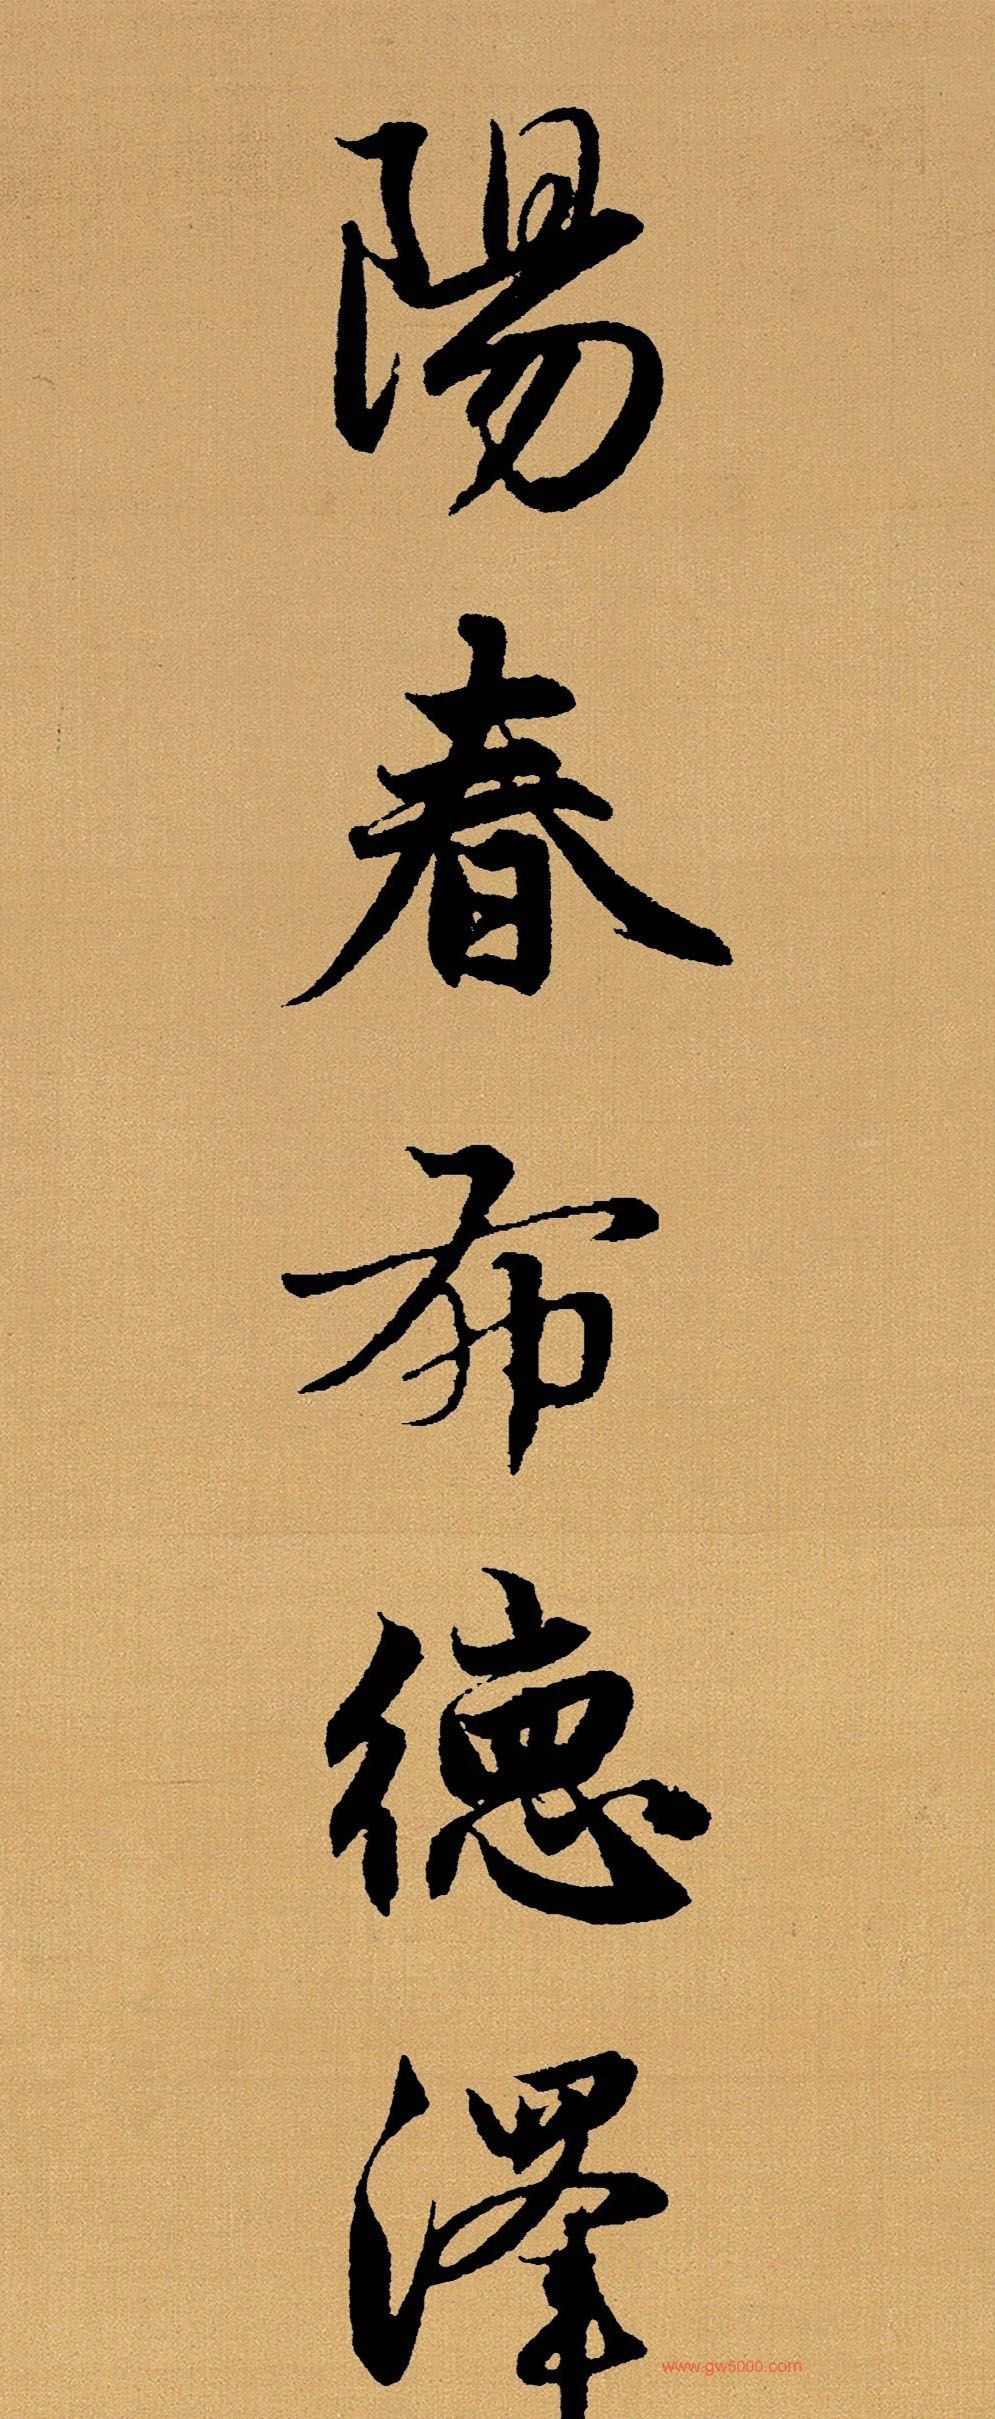 陽春布德澤
www.gw5000.com